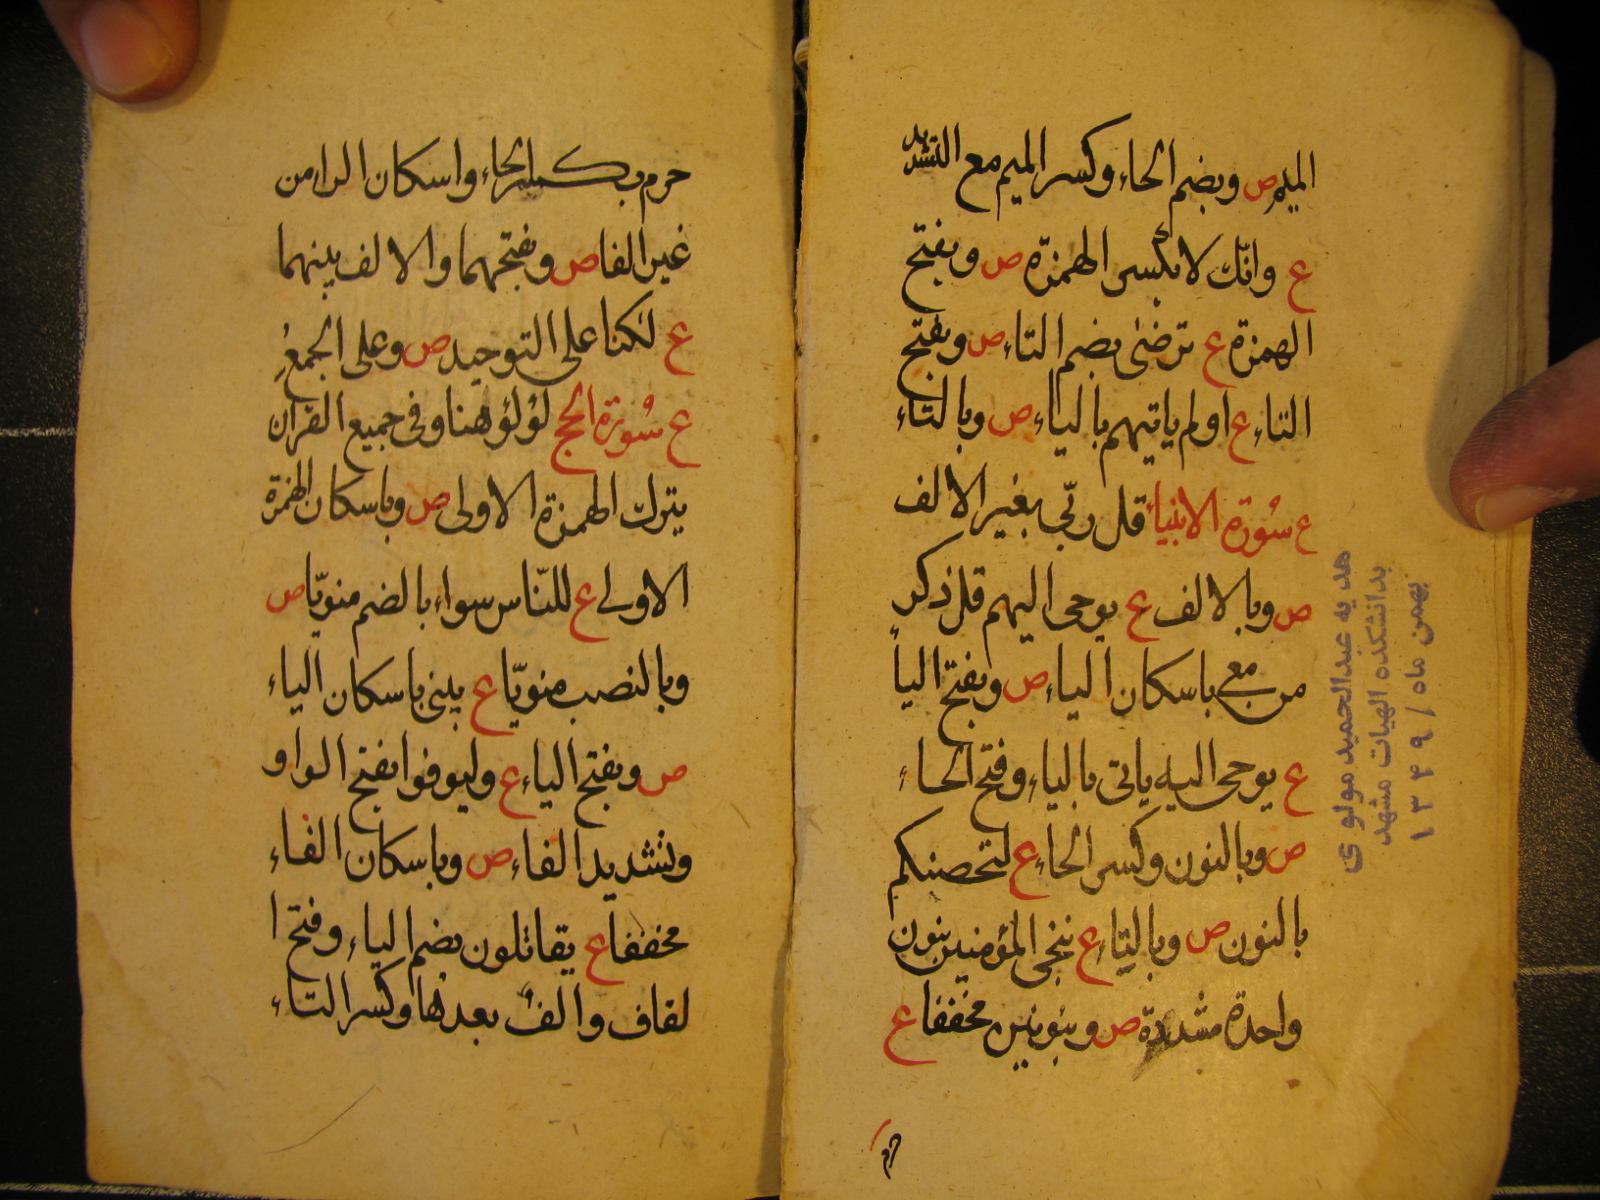 الميم ص وبضم الحاء وكسر الميم مع التشديد
ع وانّك لا بكسر الهمزة ص وبفتح
الهمزة ع ترضى بضم التاء ص وبفتح
التاء ع اولم ياتيهم بالياء ص وبالتاء
ع سُورة الانبياء قل ربّى بغير الالف
ص وبالالف ع يوحى اليهم قل ذكر
من معى باسكان الياء ص وبفتح اليأ
ع يوحى اليه ياتى بالياء وفتح الحاء
ص وبالنون وكسر الحاء ع لتحصنكم
بالنون ص وبالتاء ع ننجى المؤمنين بنون
واحدة مشددة ص وبنونين مخففا ع
حرم
هديه عبدالحميد مولوى
بدانشكده الهيات مشهد
بهمن ماه / ۱۳۴۹
حرم بكسر الحاء واسكان الراء من
غير الفا ص وبفتحهما والالف بينهما
ع لكنا على التوحيد ص وعلى الجمع
ع سُورة الحج لؤلؤ هنا وفى جميع القران
بترك الهمزة الاولى ص وباسكان الهمزة
الاولى ع للنّاس سواء بالضم منويّا ص
وبالنصب منويّا ع بيتى باسكان الياء
ص وبفتح الياء ع وليوفوا بفتح الواو
وتشديد الفاء ص وباسكان الفاء
مخففا ع يقاتلون بضم الياء وفتح ا
لقاف والف بعدها وكسر التاء